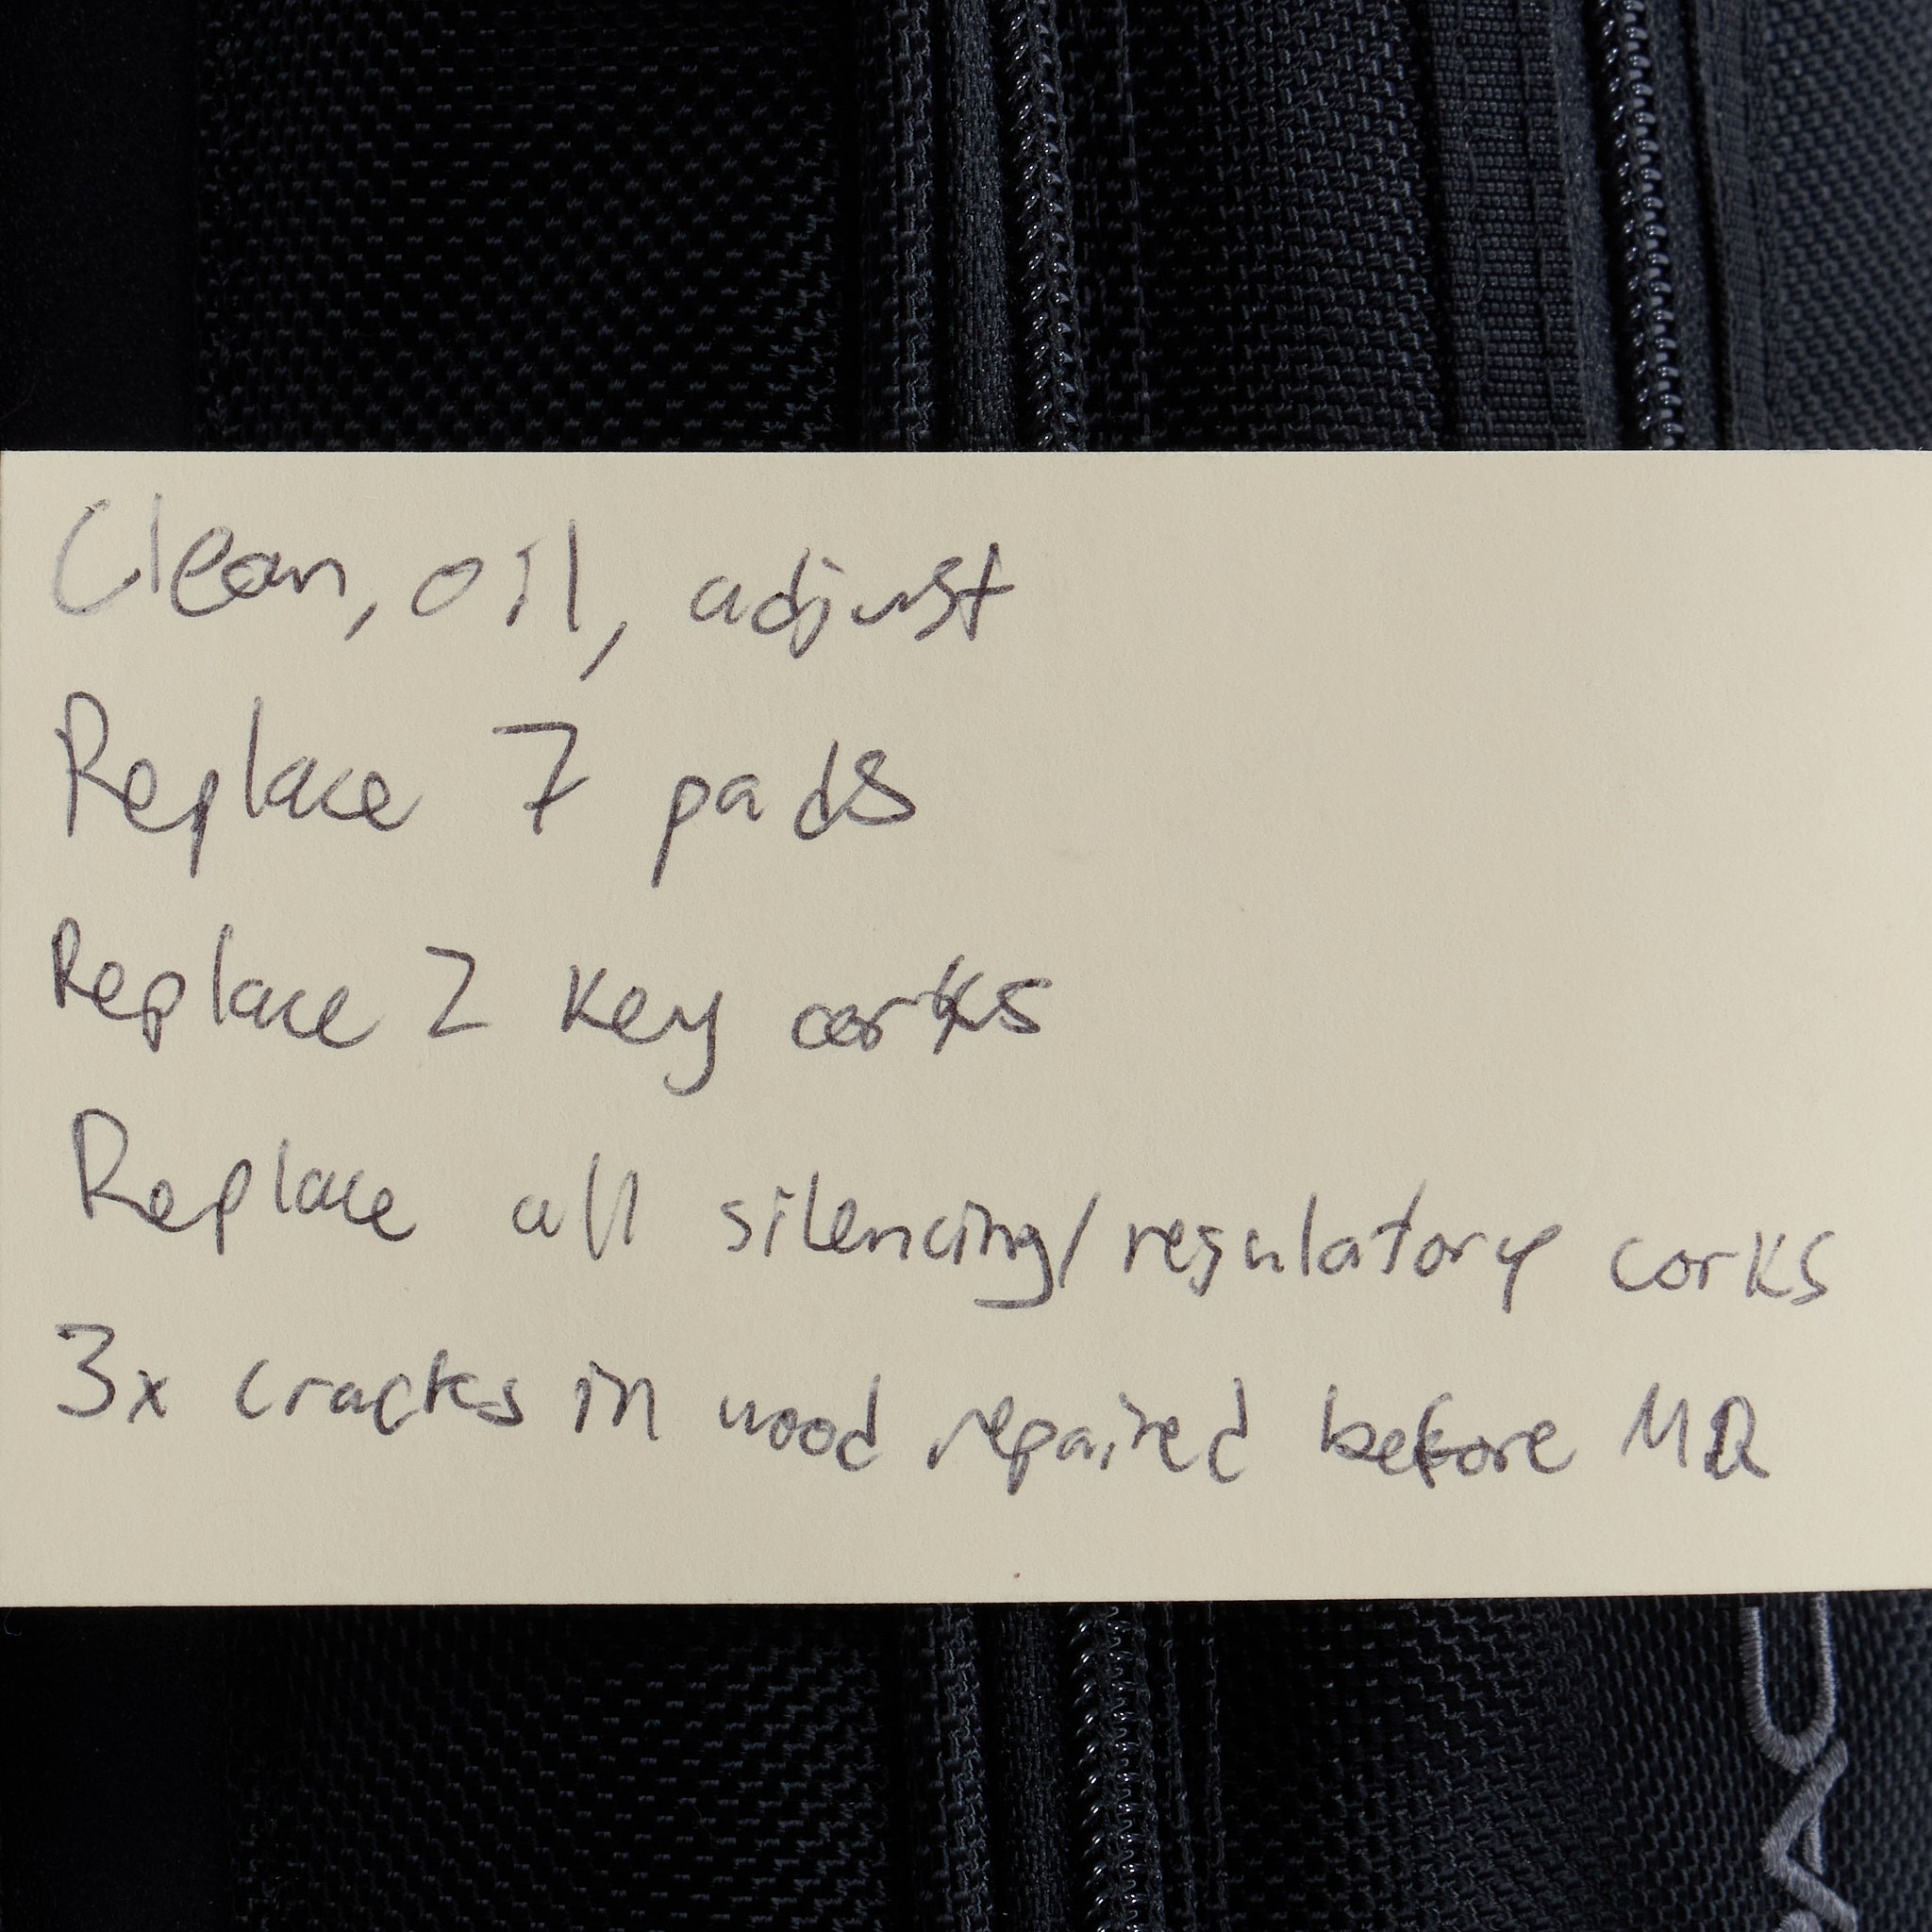 Clean, oil, adjust
Replace 7 pads
Replace 2 key corks
Replace all silencing/regulatory corks
3x cracks in wood repaired before MR